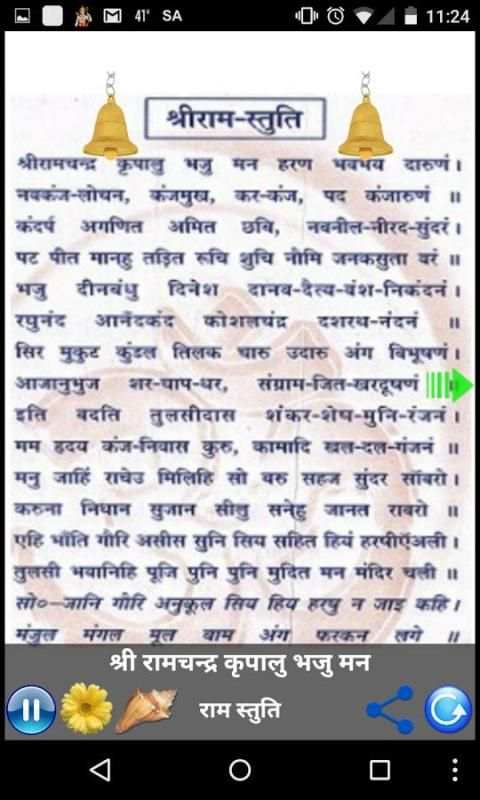 41° SA 11:24
श्रीराम-स्तुति
श्रीरामचन्द्र कृपालु भजु मन हरण भवभय दारुणं।
नवकंज-लोचन, कंजमुख, कर-कंज, पद कंजारुणं ॥
कंदर्प अगणित अमित छबि, नवनील-नीरद-सुंदरं।
पट पीत मानहु तड़ित रूचि शुचि नौमि जनकसुता वरं ॥
भजु दीनबंधु दिनेश दानव-दैत्य-बंश-निकंदनं।
रघुनंद आनँदकंद कोशलचंद्र दशरथ-नंदनं ॥
सिर मुकुट कुंडल तिलक चारु उदारु अंग बिभूषणं।
आजानुभुज शर-चाप-धर, संग्राम-जित-खरदूषणं ॥
इति बदति तुलसीदास शंकर-शेष-मुनि-रंजनं।
मम हृदय कंज-निवास कुरु, कामादि खल-दल-गंजनं ॥
मनु जाहिं राचेउ मिलिहि सो बरु सहज सुंदर साँवरो।
करुना निधान सुजान सीलु सनेहु जानत रावरो ॥
एहि भाँति गोरि असीस सुनि सिय सहित हियं हरषीऍअली।
तुलसी भवानिहि पूजि पुनि पुनि मुदित मन मंदिर चली ॥
सो०–जानि गोरि अनुकूल सिय हिय हरषु न जाइ कहि।
मंजुल मंगल मूल बाम अंग फरकन लगे ॥
श्री रामचन्द्र कृपालु भजु मन
राम स्तुति